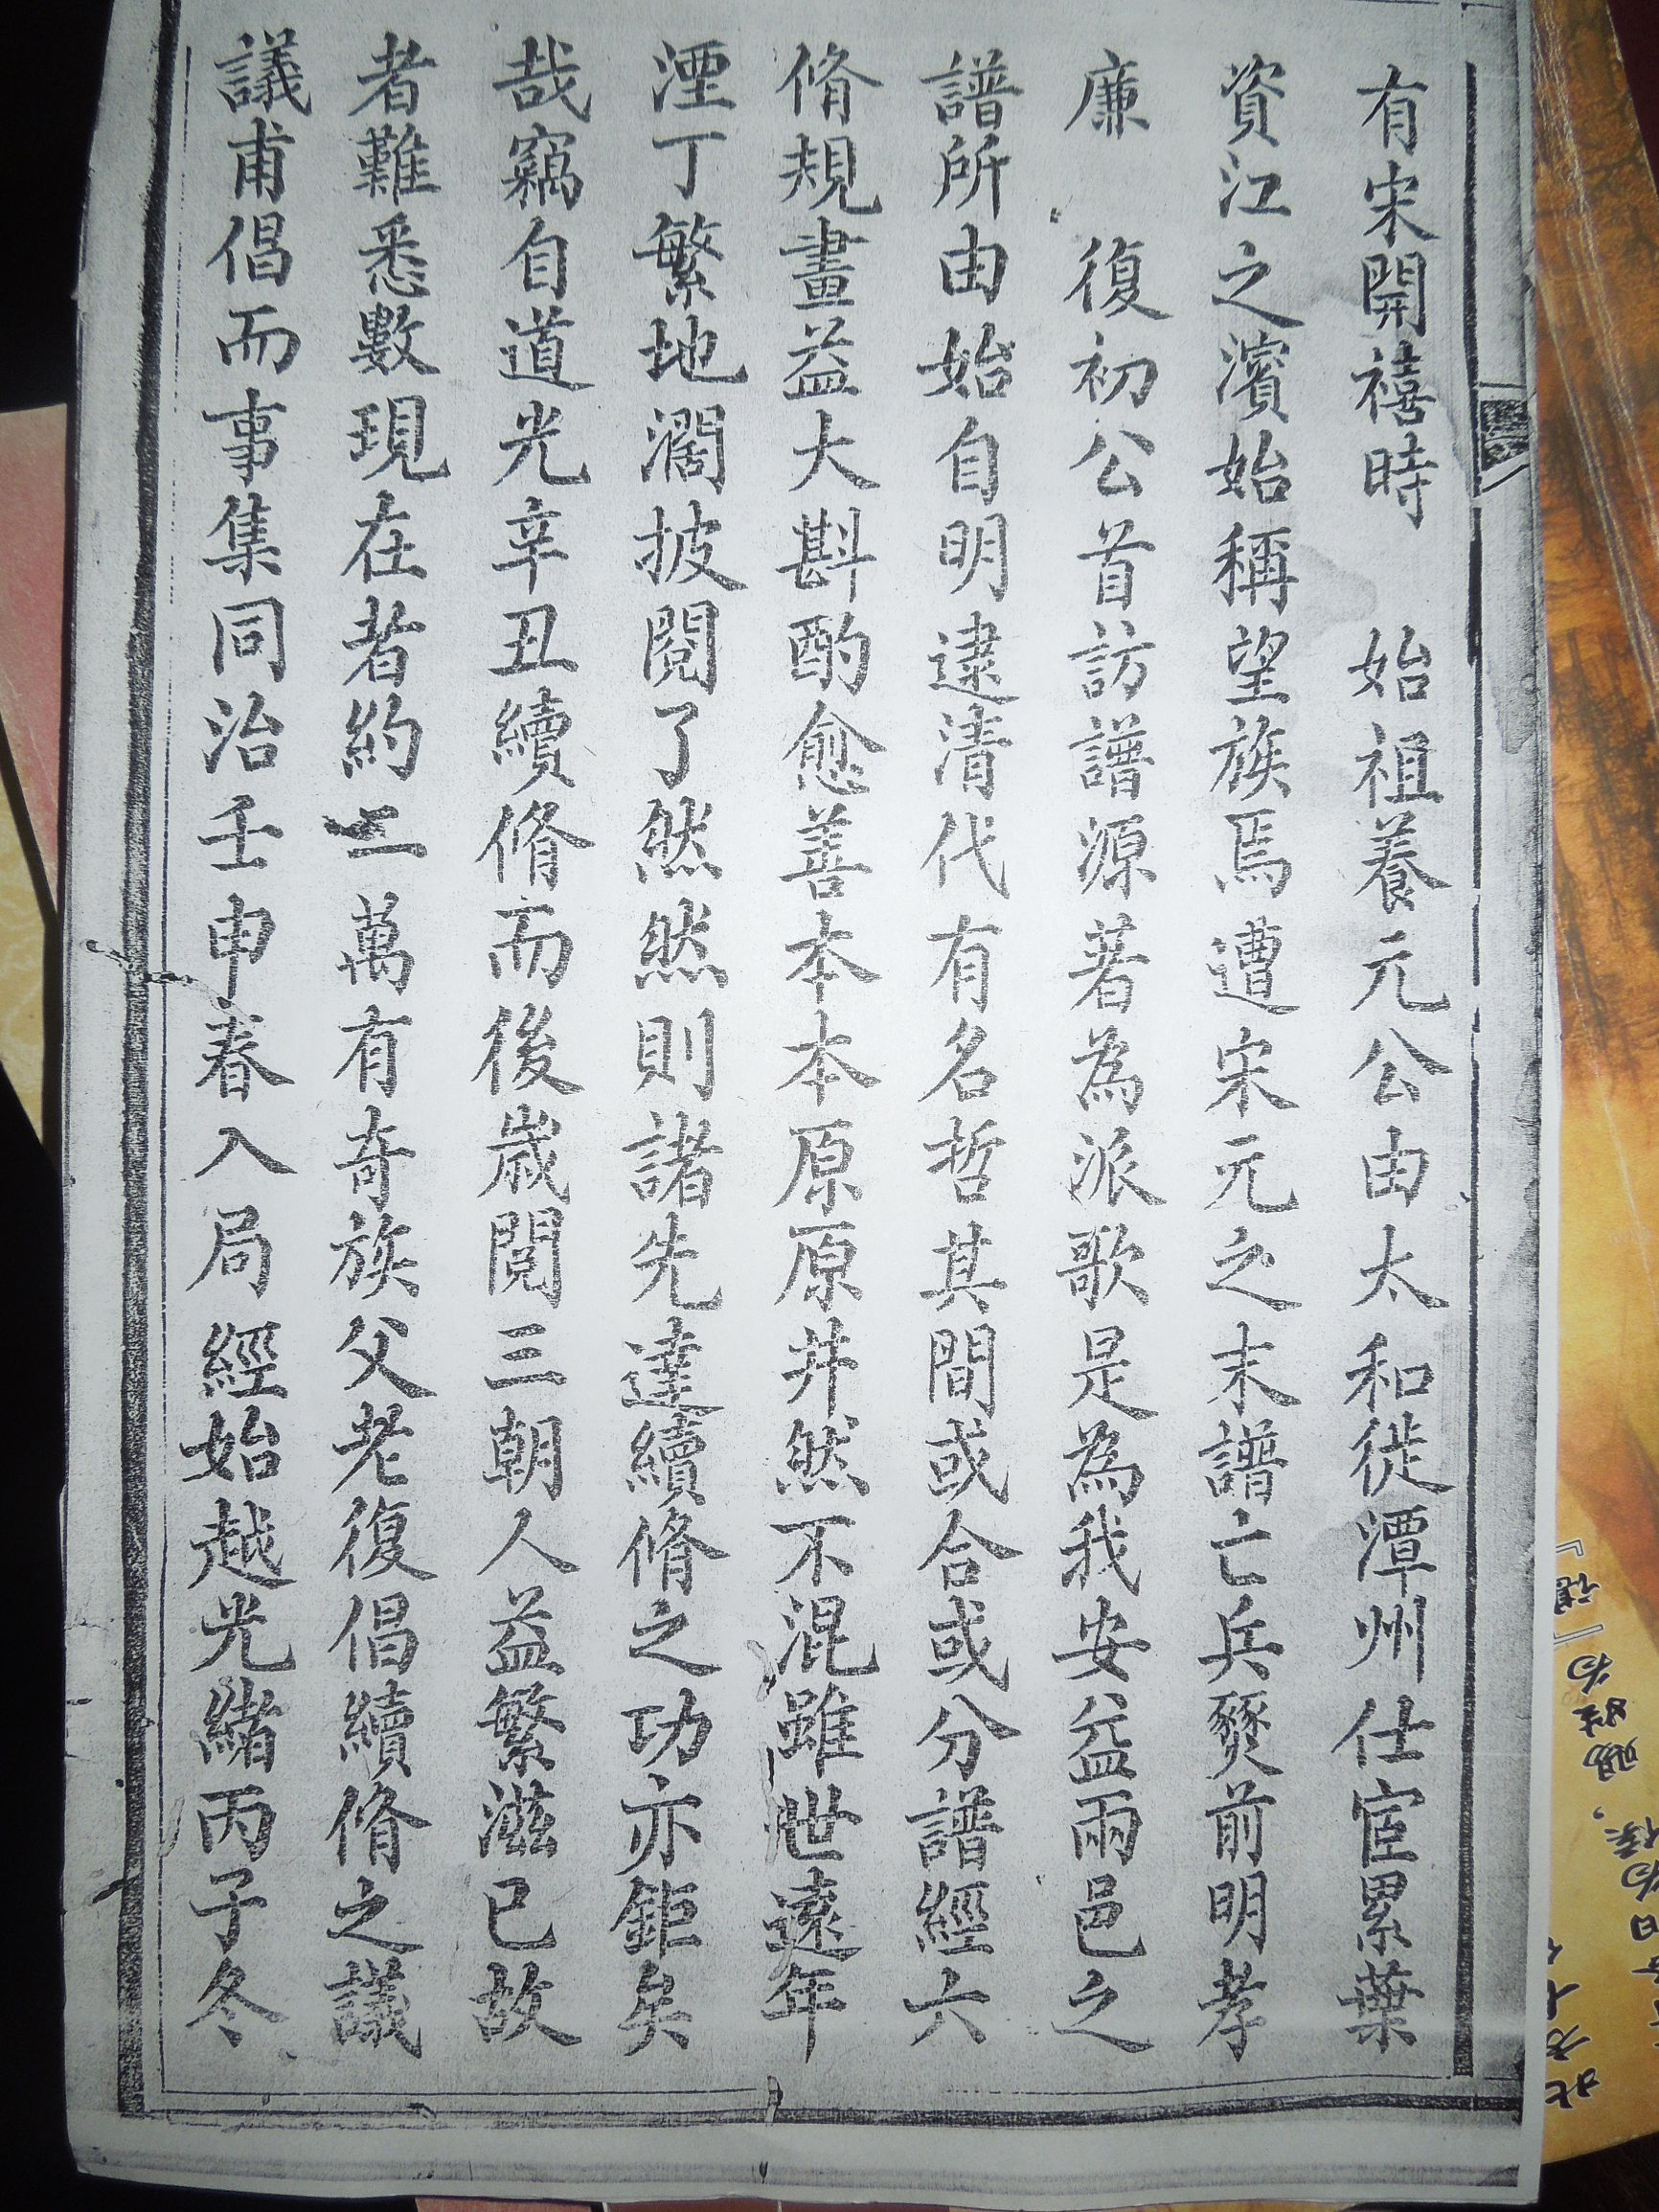 有宋開禧時 始祖養元公由太和徙潭州仕宦累葉
資江之濱始稱望族焉遭宋元之末譜亡兵燹前明孝
廉 復初公首訪譜源著為派歌是為我安益兩邑之
譜所由始自明逮清代有名哲其間或合或分譜經六
脩規畫益大斟酌愈善本本原原井然不混雖世遠年
湮丁繁地濶披閱了然然則諸先達續脩之功亦鉅矣
哉竊自道光辛丑續脩而後歲閱三朝人益繁滋已故
者難悉數現在者約二萬有奇族父老復倡續脩之議
議甫倡而事集同治壬申春入局經始越光緒丙子冬